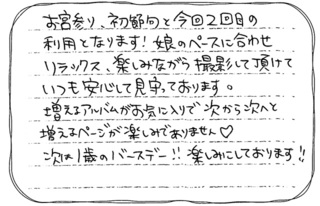 お宮参り、初節句と今回2回目の
利用となります！娘のペースに合わせ
リラックス、楽しみながら撮影して頂けて
いつも安心して見守っております。
増えるアルバムがお気に入りで次から次へと
増えるページが楽しみでありません♡
次は1歳のバースデー！！楽しみにしております！！